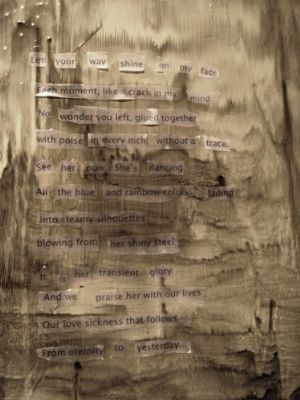 Let your way shine on my face
Each moment, like a crack in my mind
No wonder you left, glued together
with poise in every inch, without a trace.
See her now She's dancing
All the blue and rainbow colors fading
into steamy silhouettes
blowing from her shiny steel
It is her transient glory
And we praise her with our lives
Our love sickness that follows
From eternity to yesterday...